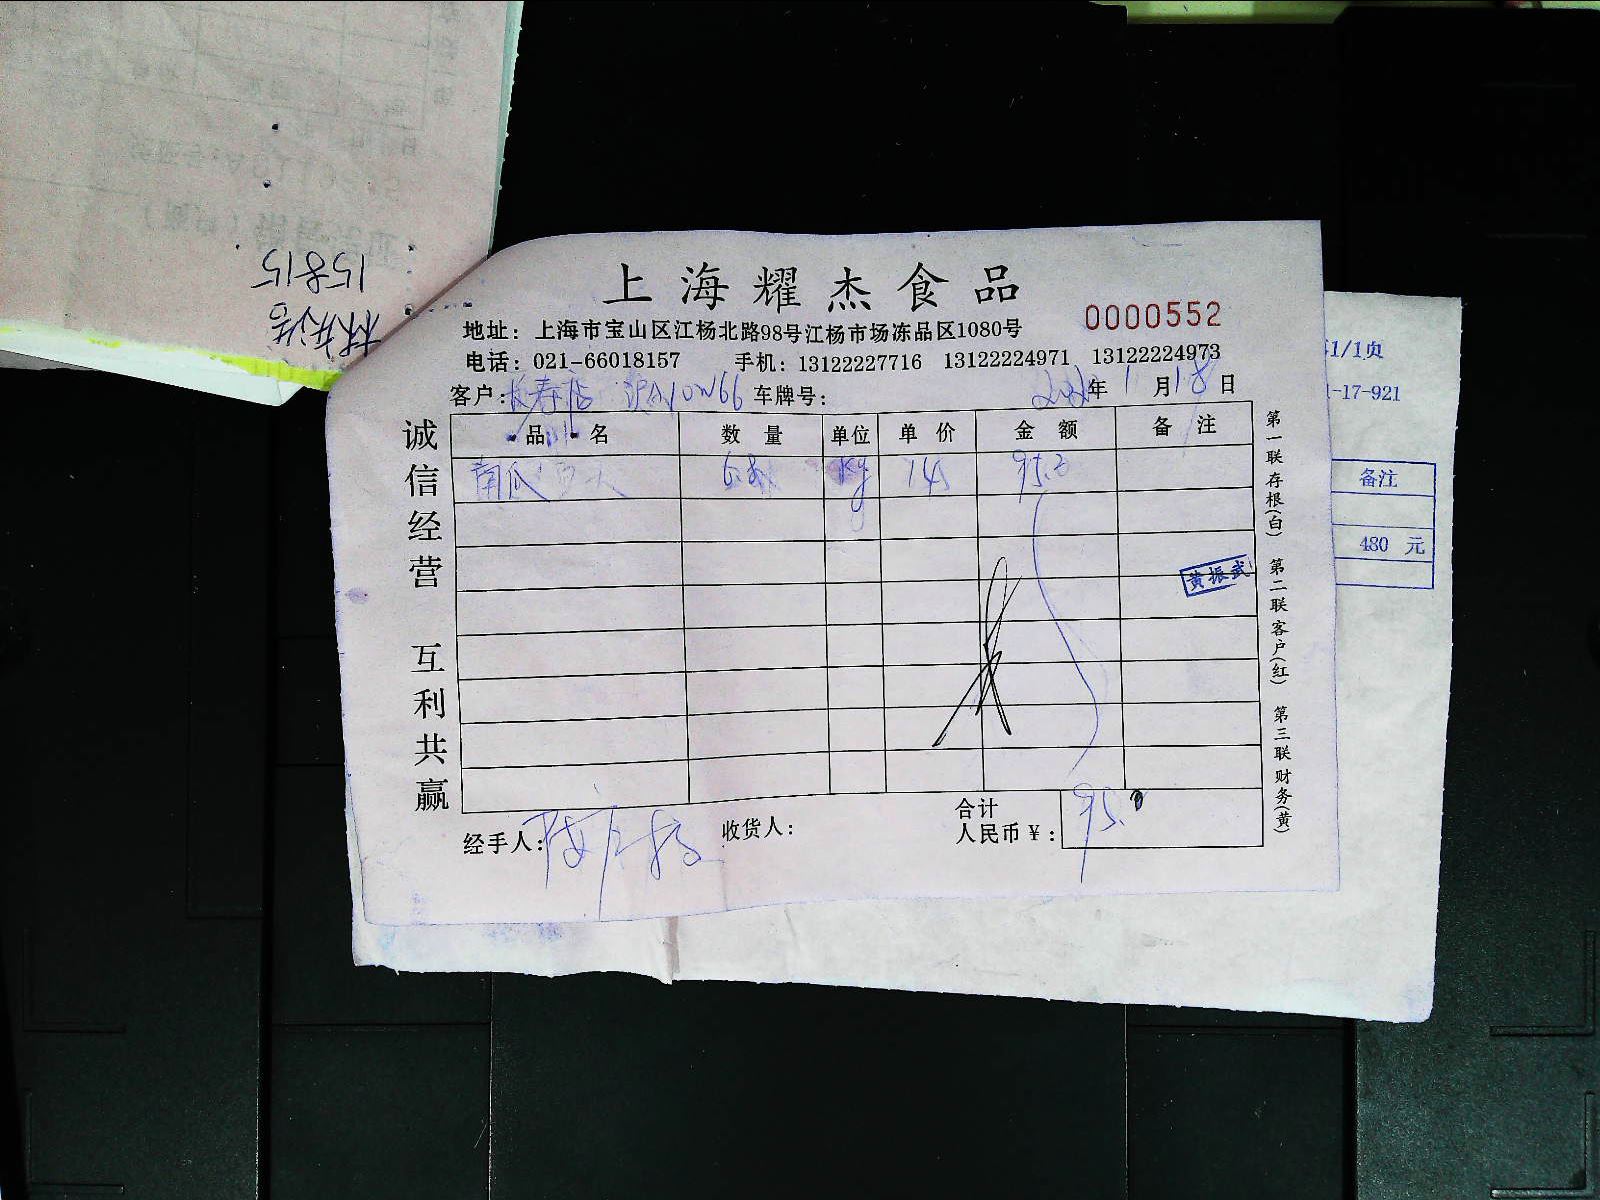 上海耀杰食品
0000552
地址：上海市宝山区江杨北路98号江杨市场冻品区1080号
电话：021-66018157 手机：13122227716 13122224971 13122224973
客户：长寿店 沪A10W66 车牌号： 年 1 月 18 日
品名 数量 单位 单价 金额 备注
南瓜 6.8 kg 14
合计
人民币￥： 95.
经手人： 收货人：
诚信经营 互利共赢
第一联存根(白) 第二联客户(红) 第三联财务(黄)
黄振武
1/1页
-17-921
备注
480 元
15815